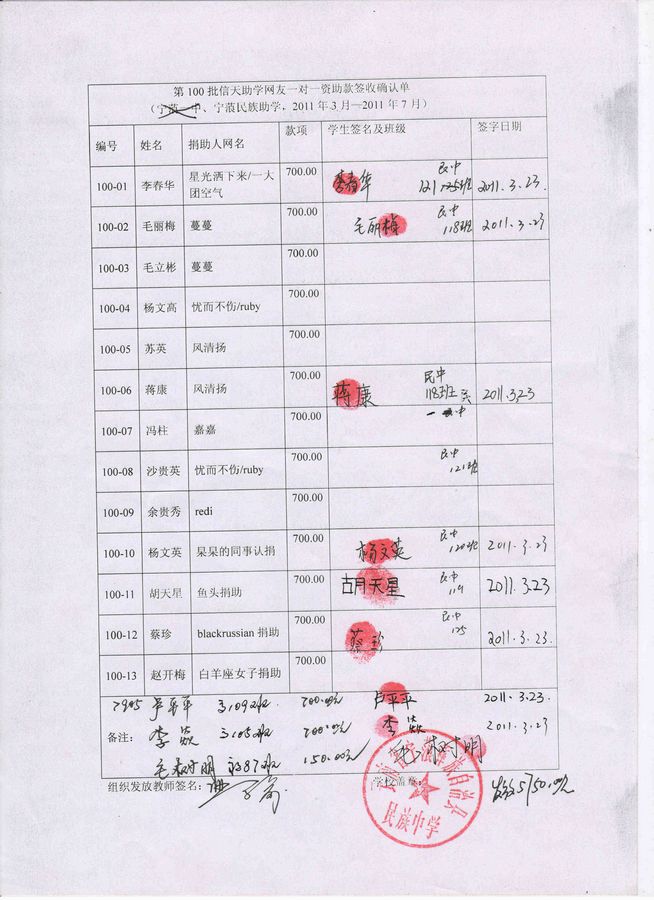 第 100 批信天助学网友一对一资助款签收确认单
（宁蒗一中、宁蒗民族助学，2011 年 3 月—2011 年 7 月）
编号 姓名 捐助人网名 款项 学生签名及班级 签字日期
100-01 李春华 星光洒下来/一大团空气 700.00 李春华 民中 121 班 2011.3.23.
100-02 毛丽梅 蔓蔓 700.00 毛丽梅 民中 118班 2011.3.23
100-03 毛立彬 蔓蔓 700.00
100-04 杨文高 忧而不伤/ruby 700.00
100-05 苏英 风清扬 700.00
100-06 蒋康 风清扬 700.00 蒋康 民中 118班 2011.3.23
100-07 冯柱 嘉嘉 700.00 一中
100-08 沙贵英 忧而不伤/ruby 700.00 民中 121班
100-09 余贵秀 redi 700.00
100-10 杨文英 杲杲的同事认捐 700.00 杨文英 民中 120班 2011.3.23
100-11 胡天星 鱼头捐助 700.00 胡天星 民中 119 2011.3.23
100-12 蔡珍 blackrussian 捐助 700.00 蔡珍 民中 125 2011.3.23.
100-13 赵开梅 白羊座女子捐助 700.00
卢平平 高109班 700.00元 卢平平 2011.3.23.
备注： 李焱 高105班 700.00元 李焱 2011.3.23
毛树明 初87班 150.00元 毛树明
组织发放教师签名： 学校盖章： 5750.00元
民族中学